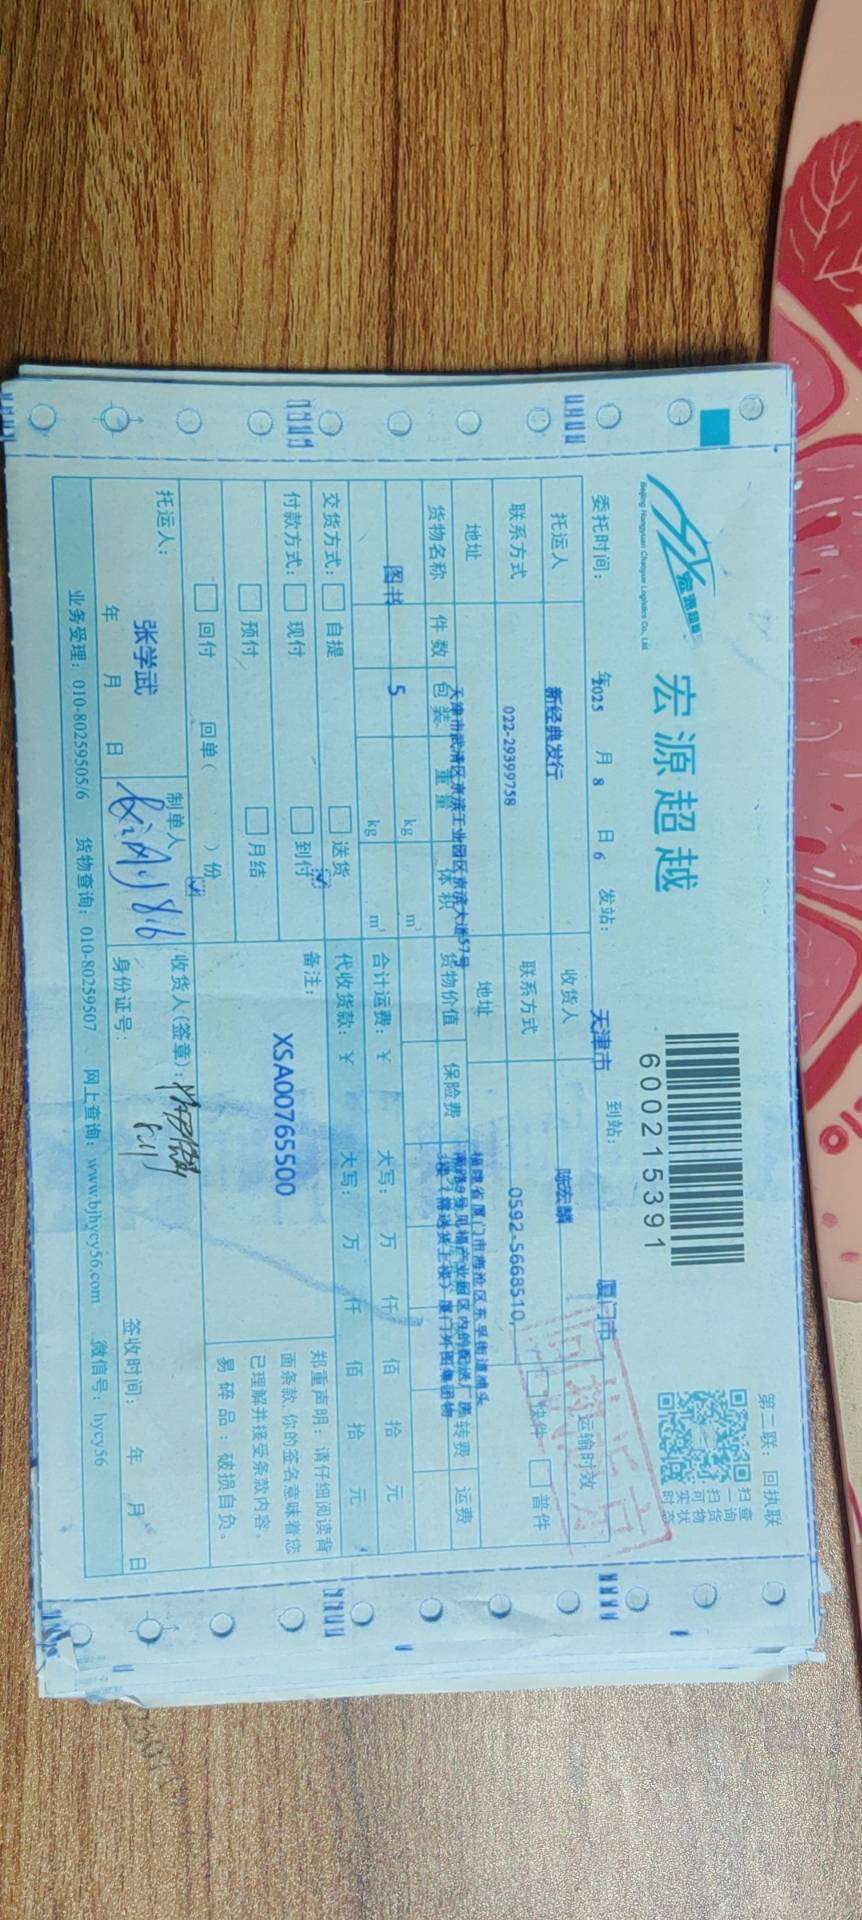 第二联：回执联
宏源超越
Beijing Hongyuan Chaoyue Logistics Co., Ltd.
宏源超越
600215391
扫一扫可实时
查询货物状态
委托时间： 2025 年 8 月 6 日 发站： 天津市 到站： 厦门市
托运人 新经典发行 收货人 陈宏麟 运输时效
联系方式 022-29399758 联系方式 0592-5668510, 快件 普件
地址 天津市武清区京滨工业园区京滨大道57号 地址 福建省厦门市海沧区东孚街道浦头
货物名称 件数 包装 重量 体积 货物价值 保险费 转费 运费
图书 5 kg m³
kg m³
合计运费：￥ 大写： 万 仟 佰 拾 元
交货方式： 自提 送货 代收货款：￥ 大写： 万 仟 佰 拾 元
付款方式： 现付 到付 备注：
预付 月结
回付 回单（ ）份
XSA00765500
郑重声明：请仔细阅读背
面条款，你的签名意味着您
已理解并接受条款内容。
易碎品：破损自负。
托运人： 张学武 制单人 收货人(签章)：
年 月 日 身份证号： 签收时间： 年 月 日
业务受理：010-80259505/6 货物查询：010-80259507 网上查询：www.bjhycy56.com 微信号：hycy56